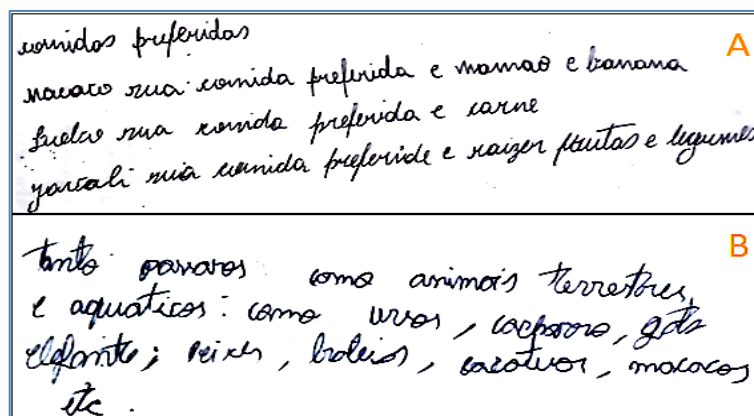 comidas preferidas
A
macaco sua comida preferida e mamao e banana
sua comida preferida e carne
sua comida preferide e raizer frutas e legumes
B
tanto passaros como animais terrestres,
e aquaticos: como ursos, cachorro, gato
elefante; peixes, baleias, cacatuas, macacos
etc.